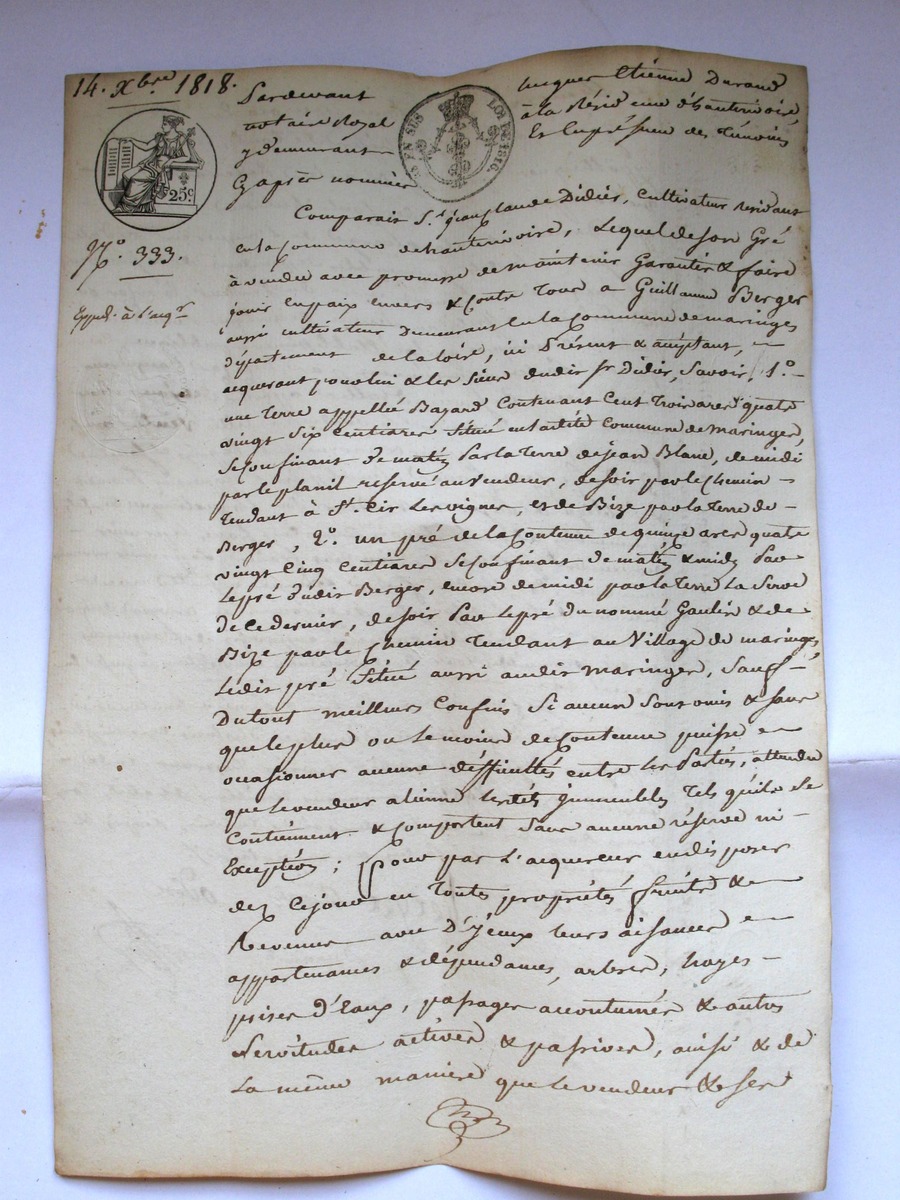 14. Xbre 1818.
25c
No. 333.
Pardevant Jacques Etienne Durand
notaire Royal à la Résidence d'hauterivoire
y demeurant Et En présence des Témoins
Cy après nommés
LOI DE 1816
Comparait Sr. Jean Claude Didier, cultivateur résidant
en la Commune d'hauterivoire, Lequel de son Gré
à vendu avec promesse de maintenir Garantir & faire
jouir En paix envers & Contre Tous a Guillaume Berger
aussi cultivateur Demeurant En la Commune de maringes
département de la Loire, ici Présent & acceptant,
acquerant pour lui & les siens dudit Sr Didier, Savoir, 1o.
une Terre appellée Bazard Contenant Cent Trois ares quatre
vingt Six Centiares Située en ladite Commune de Maringes,
Se Confinant de matin Par la Terre de jean Blanc, de midi
par le réservé au Vendeur, de soir par le Chemin
Tendant à St. Cir Les vignes, et de Bize par la Terre de
Berger, 2o. un pré de la Contenue de quinze ares quatre
vingt Cinq Centiares Se Confinant de matin & midi Par
le pré dudit Berger, encore de midi par la Terre La Serve
de Ce dernier, de soir Par le pré du nommé Gaulin & de
Bize par le Chemin Tendant au Village de maringes
Ledit pré Situé aussi audit Maringes, Sauf
Du tout meilleurs Confins Si aucuns Sont omis & Sans
que le plus ou Le moins de Contenue puisse
occasionner aucunes difficultés entre les Parties, attendu
que le vendeur aliène lesdits Immeubles Tels qu'ils Se
Contiennent & Comportent Sans aucune réserve ni
Exception; Pour par L'acquereur en disposer
dez Ce jour en Toutes propriétés fruits &
Revenus avec D'Yceux leurs aisances
appartenances & dépendances, arbres, hayes
prises d'Eaux, passages accoutumés & autres
Servitudes actives & passives, ainsi & de
La même manière que le vendeur & Ses